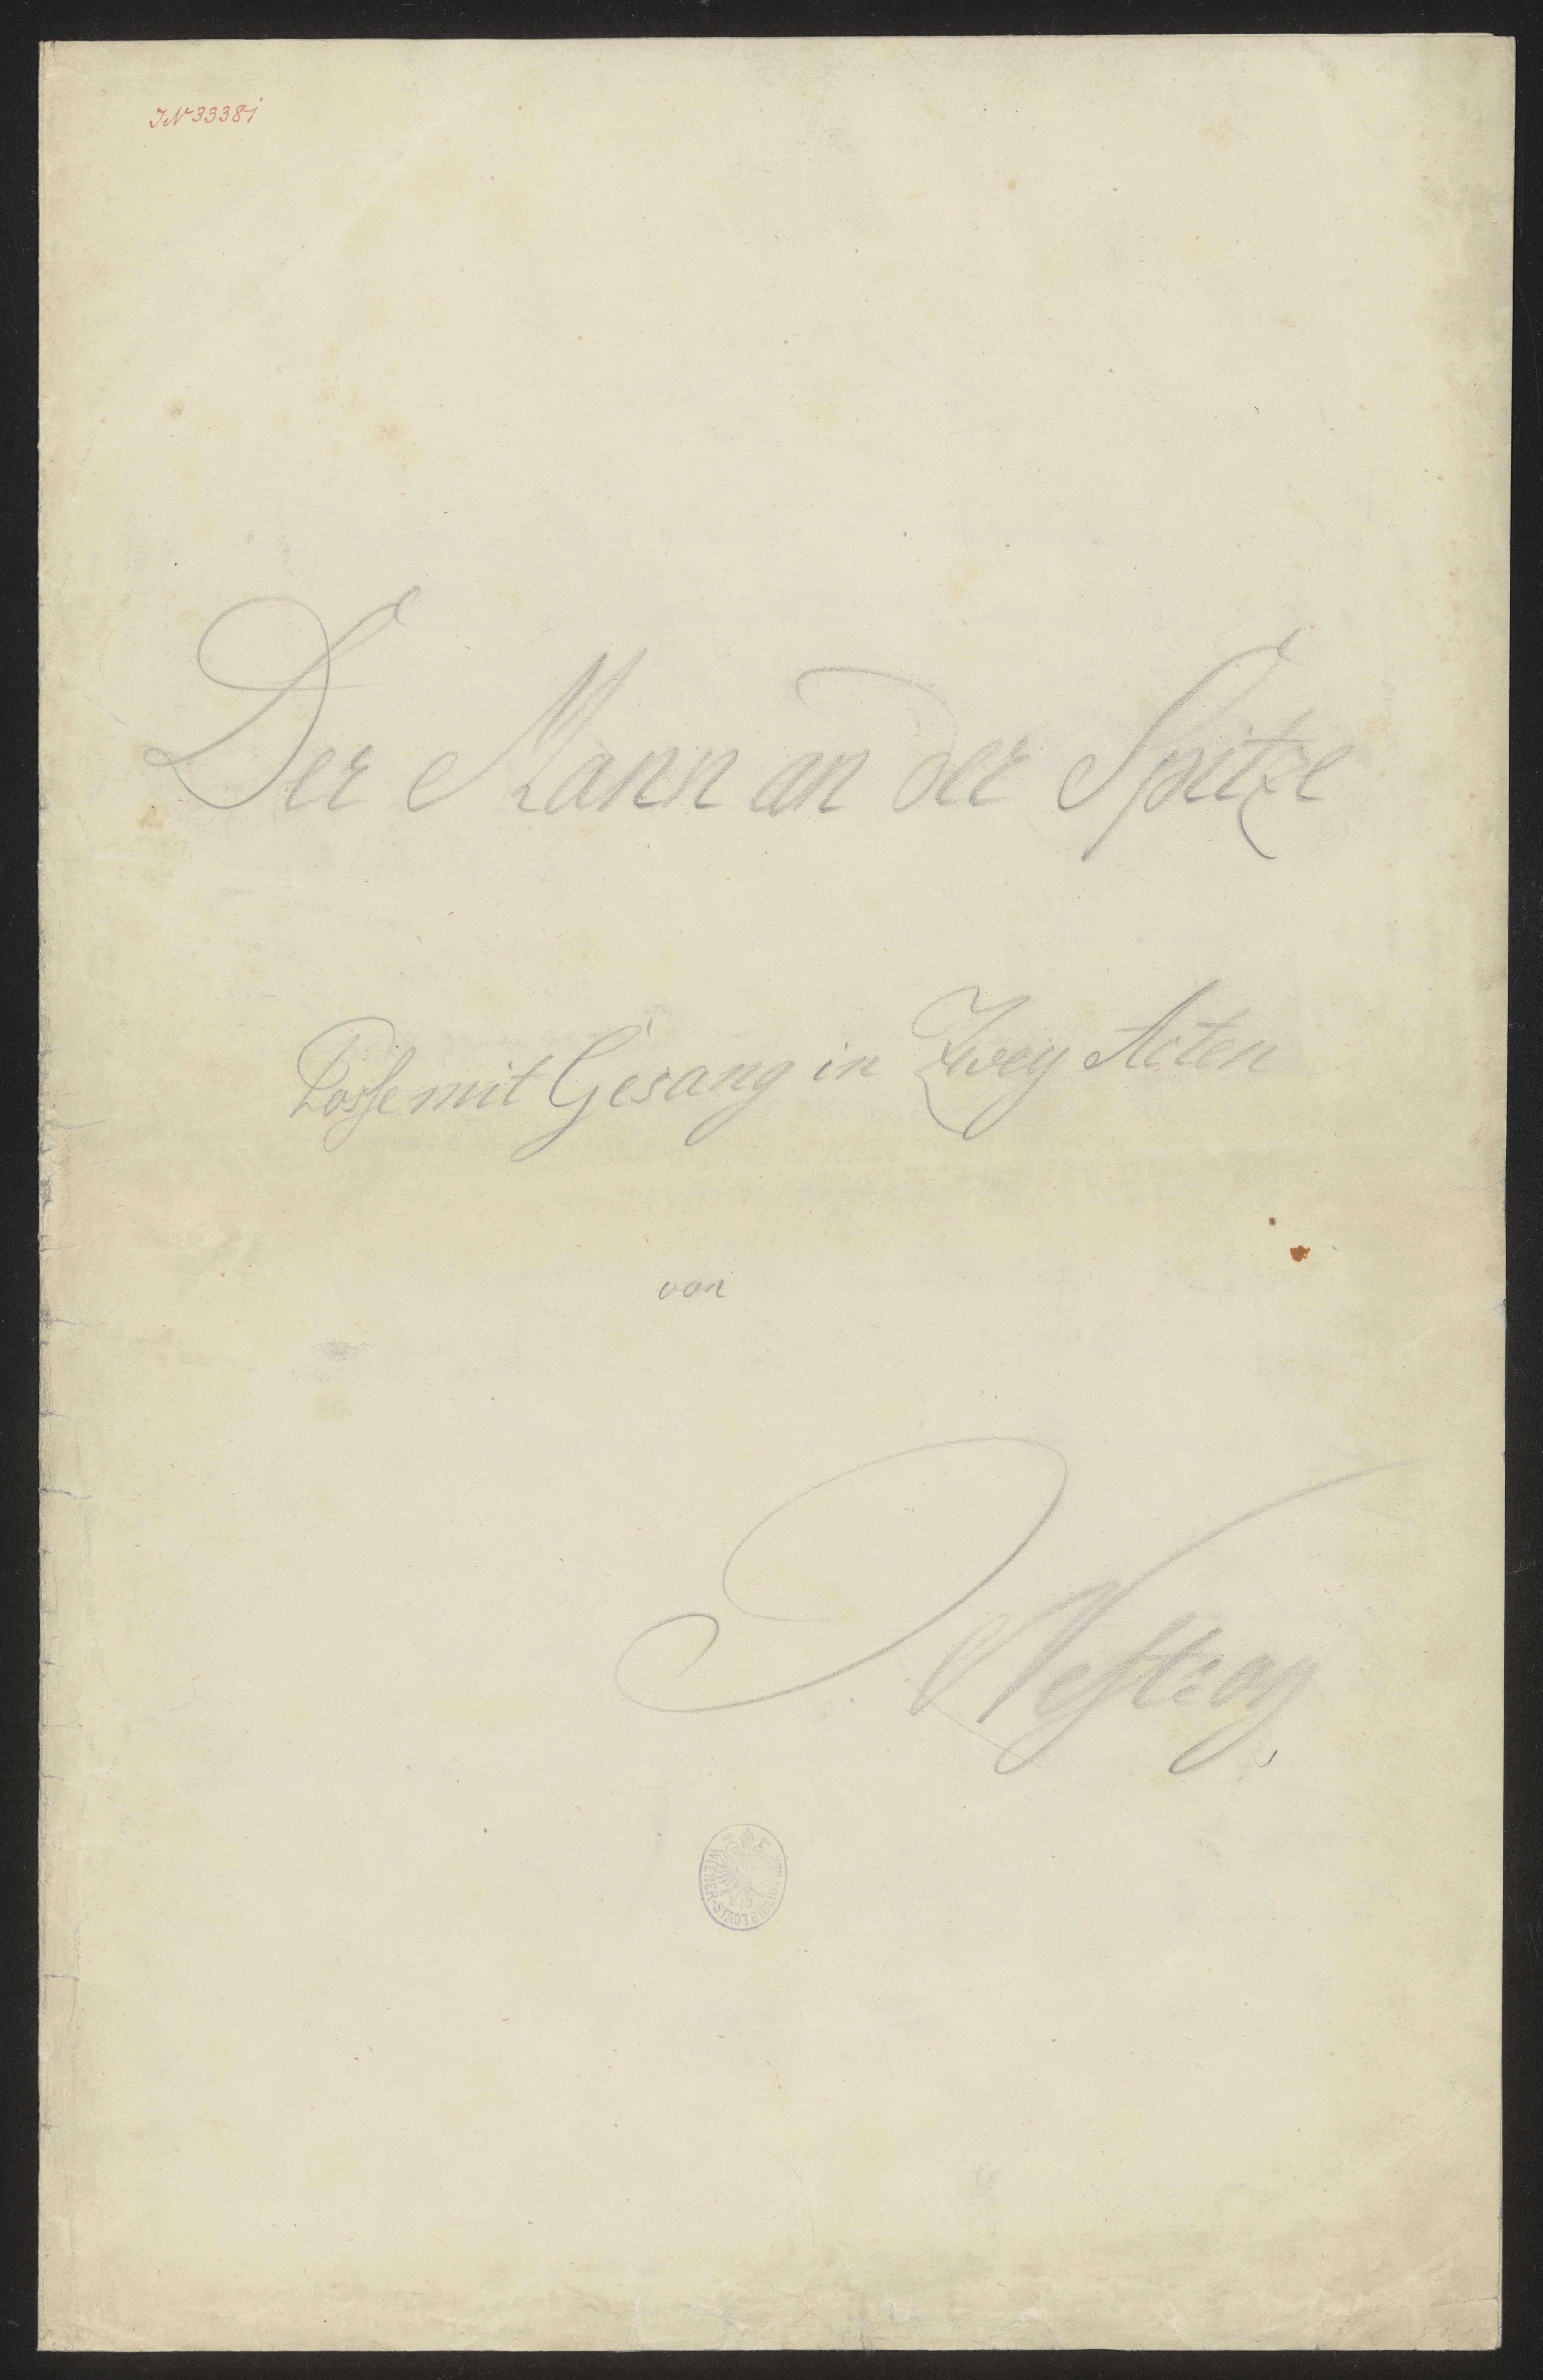 IN 33381
Der Mann an der Spitze
Posse mit Gesang in Zwey Acten
von
J. Nestroy
WIENER-STADTBIBLIOTHEK